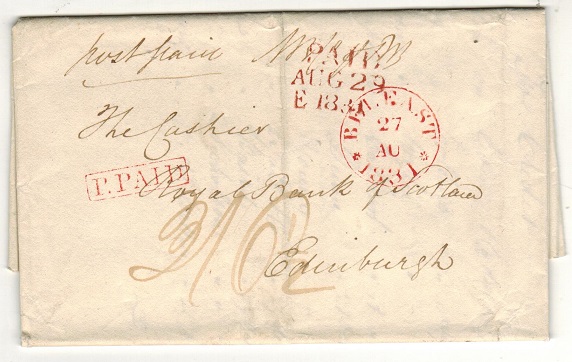 post paid
PAID
AUG 29
E 1831
BELFAST
27
AU
1831
The Cashier
P.PAID
Royal Bank of Scotland
Edinburgh